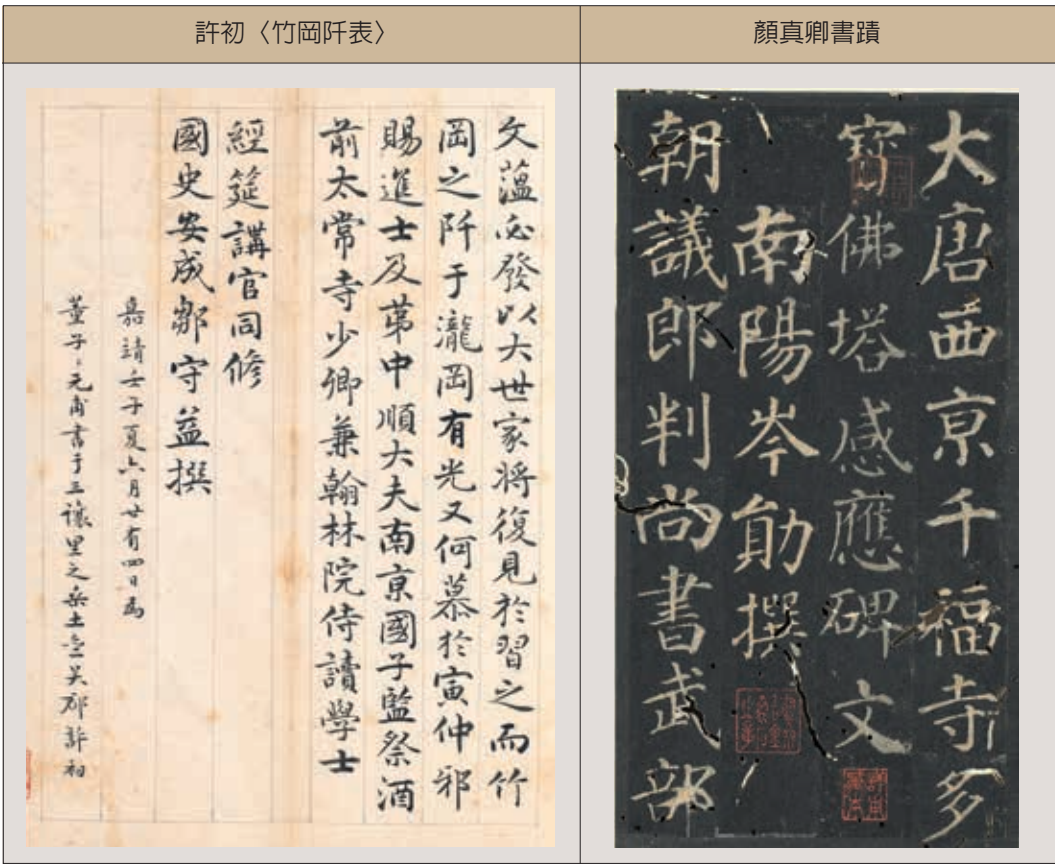 許初〈竹岡阡表〉
顏真卿書蹟
文蘊必發以大世家將復見於習之而竹
岡之阡于瀧岡有光又何慕於寅仲邪
賜進士及第中順大夫南京國子監祭酒
前太常寺少卿兼翰林院侍讀學士
經筵講官同修
國史安成鄒守益撰
嘉靖壬子夏六月廿有四日為
董子子元甫書于三讓里之樂土吳郡許初
大唐西京千福寺多
寶佛塔感應碑文
南陽岑勛撰
朝議郎判尚書武部